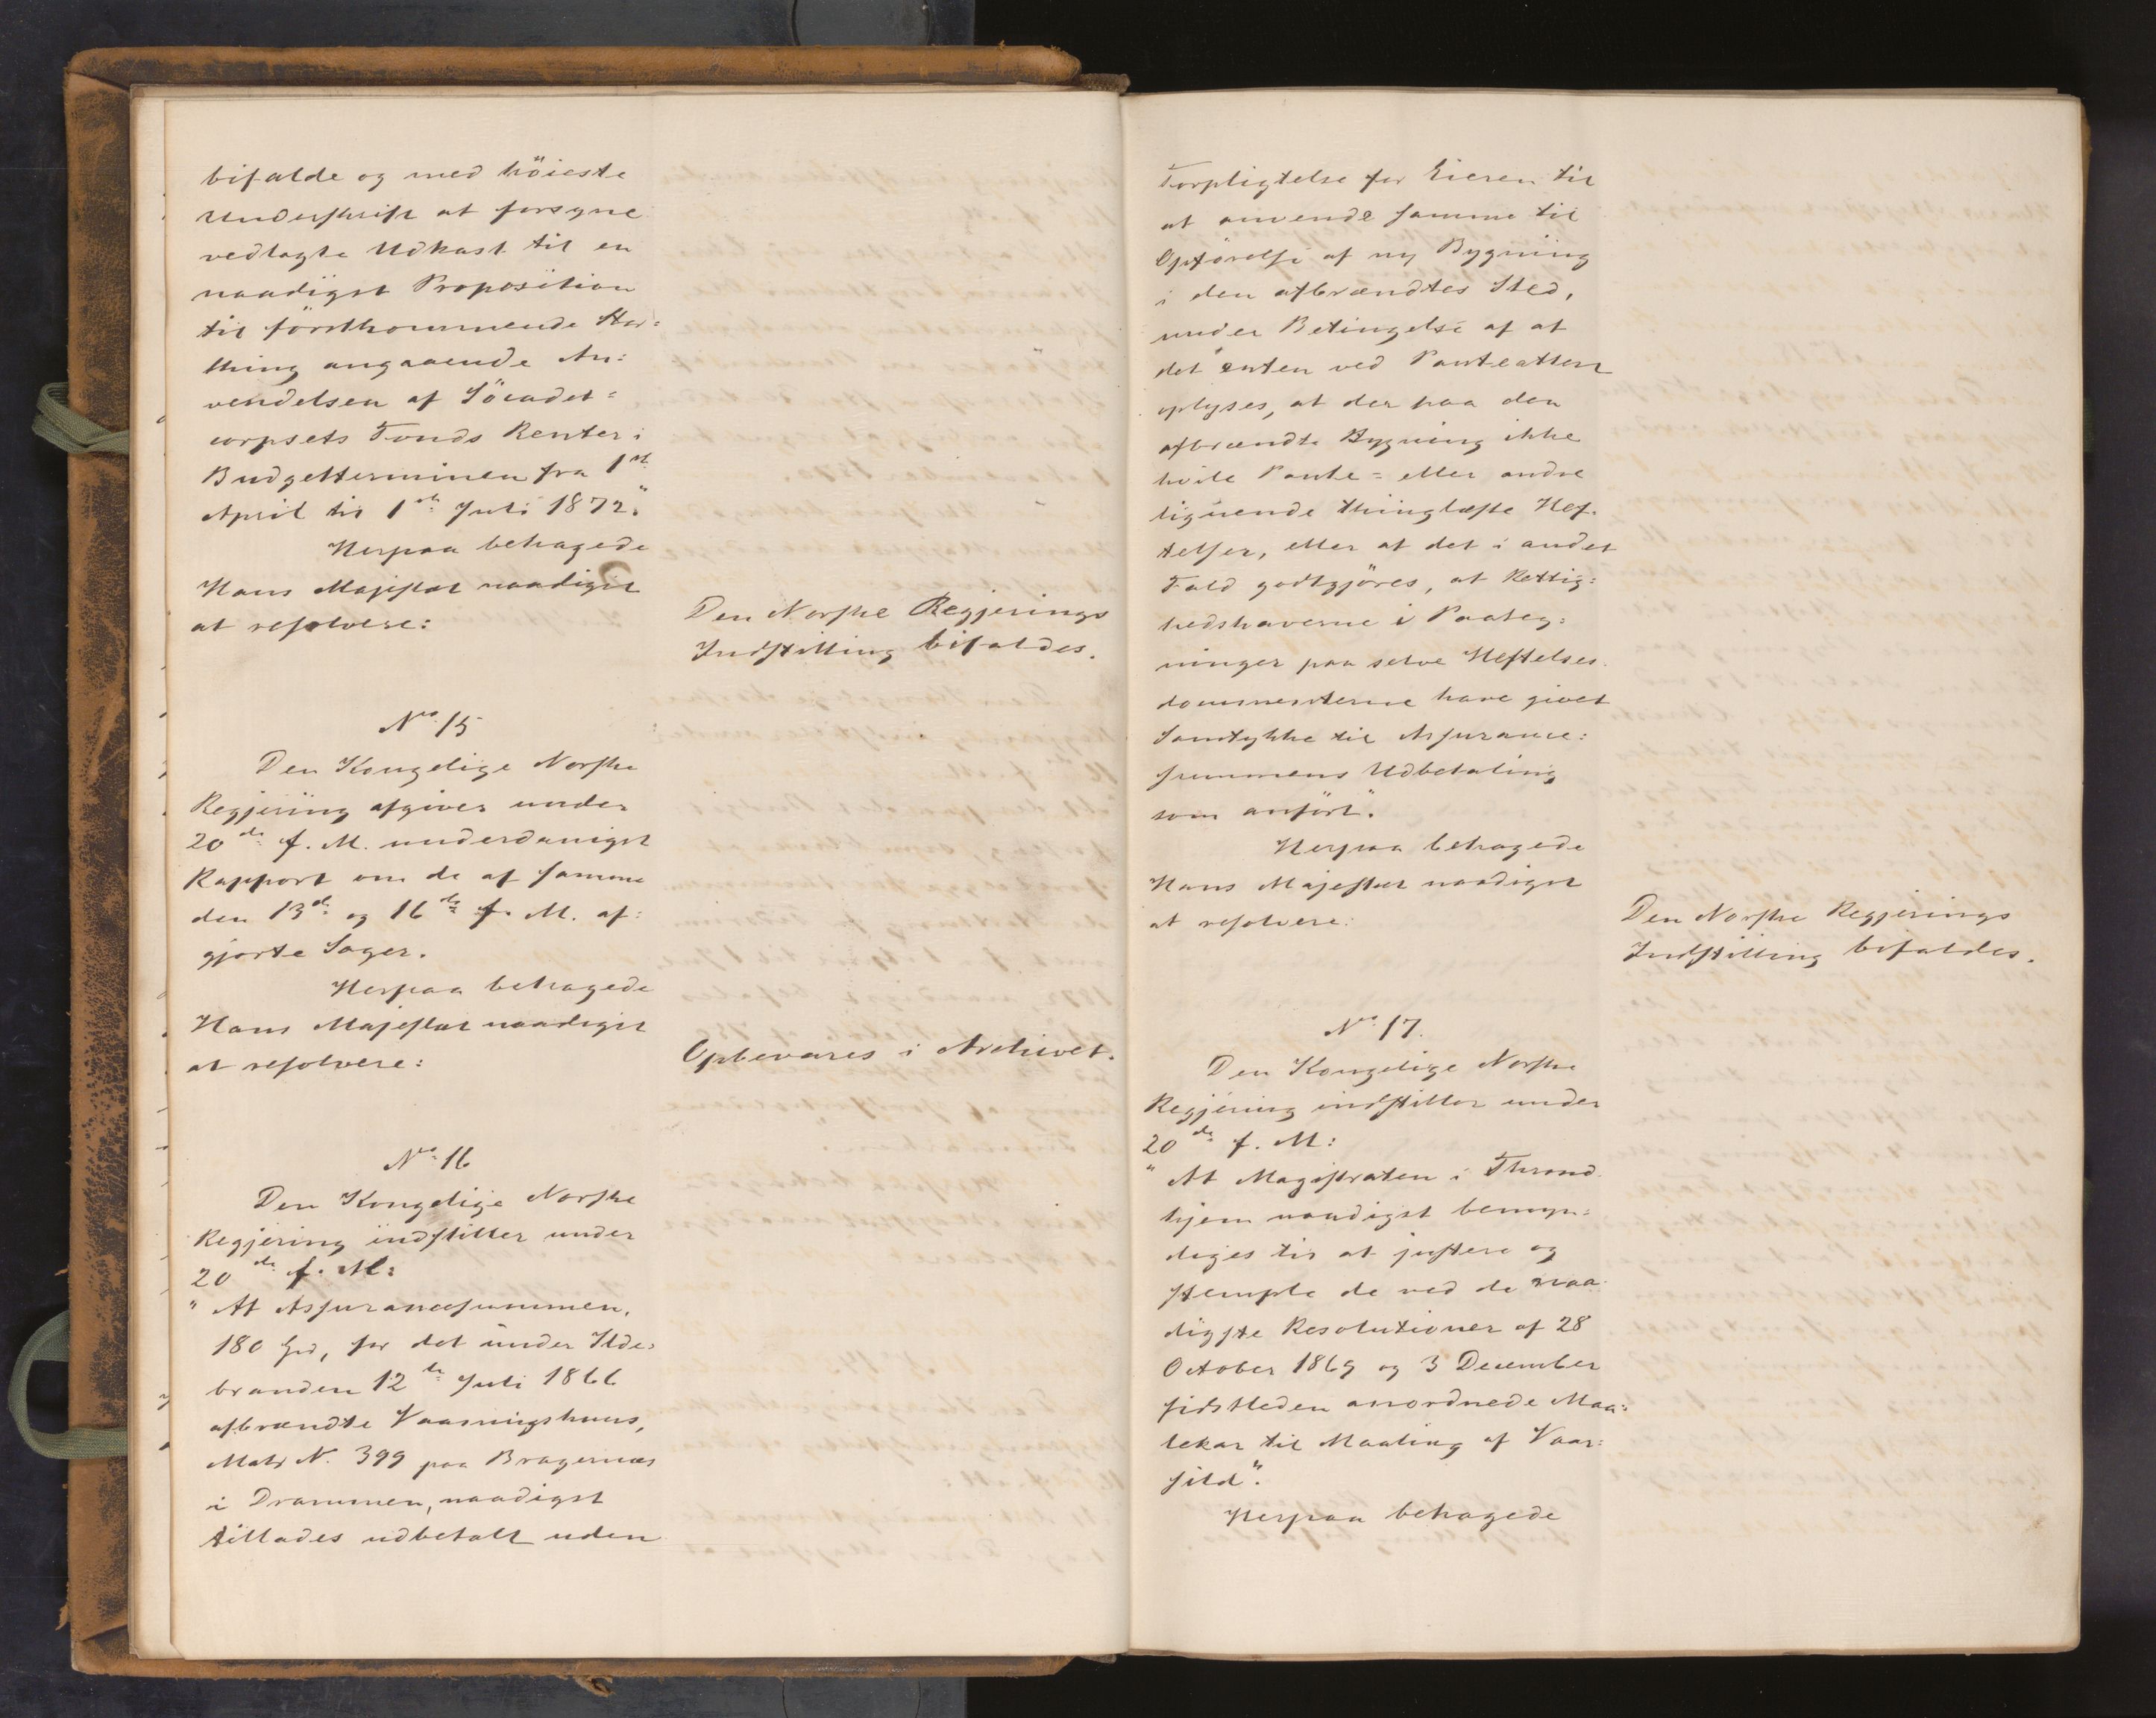 bifalde og med höieste
Underskrift at forsyne
vedlagte Udkast til en
naadigst Proposition
til förstkommende Stor=
thing angaaende An=
vendelsen af Söcadet=
corpsets Fonds Renter i
Budgetterminen fra 1ste
April til 1ste Juli 1872."
Herpaa behagede
Hans Majestæt naadigst
at resolvere:
Den Norske Regjerings
Indstilling bifaldes.
No 15
Den Kongelige Norske
Regjering afgiver under
20de f. M. underdanigst
Rapport om de af samme
den 13de og 16de f. M. af=
gjorte Sager.
Herpaa behagede
Hans Majestæt naadigst
at resolvere:
Opbevares i Archivet.
No 16
Den Kongelige Norske
Regjering indstiller under
20de f. M:
" At Assurancesummen,
180 Spd, for det under Ilde=
branden 12te Juli 1866
afbrændte Vaaningshuus,
Matr N. 399 paa Bragernæs
i Drammen, naadigst
tillades udbetalt uden
Forpligtelse for Eieren til
at anvende samme til
Opförelse af ny Bygning
i den afbrændtes Sted,
under Betingelse af at
det enten ved Panteattest
oplyses, at der paa den
afbrændte Bygning ikke
hvile Pante= eller andre
lignende thinglæste Hef=
telser, eller at det i andet
Fald godtgjöres, at Rettig=
hedshaverne i Paateg=
ninger paa selve Heftelses
documenterne have givet
Samtykke til Assurance=
summens Udbetaling
som anfört".
Herpaa behagede
Hans Majestæt naadigst
at resolvere:
Den Norske Regjerings
Indstilling bifaldes.
No 17.
Den Kongelige Norske
Regjering indstiller under
20de f. M:
" At Magistraten i Thrond
hjem naadigst bemyn=
diges til at justere og
stemple de ved de naa
digste Resolutioner af 28
October 1869 og 3 December
sidstleden anordnede Maa=
lekar til Maaling af Vaar=
sild".
Herpaa behagede